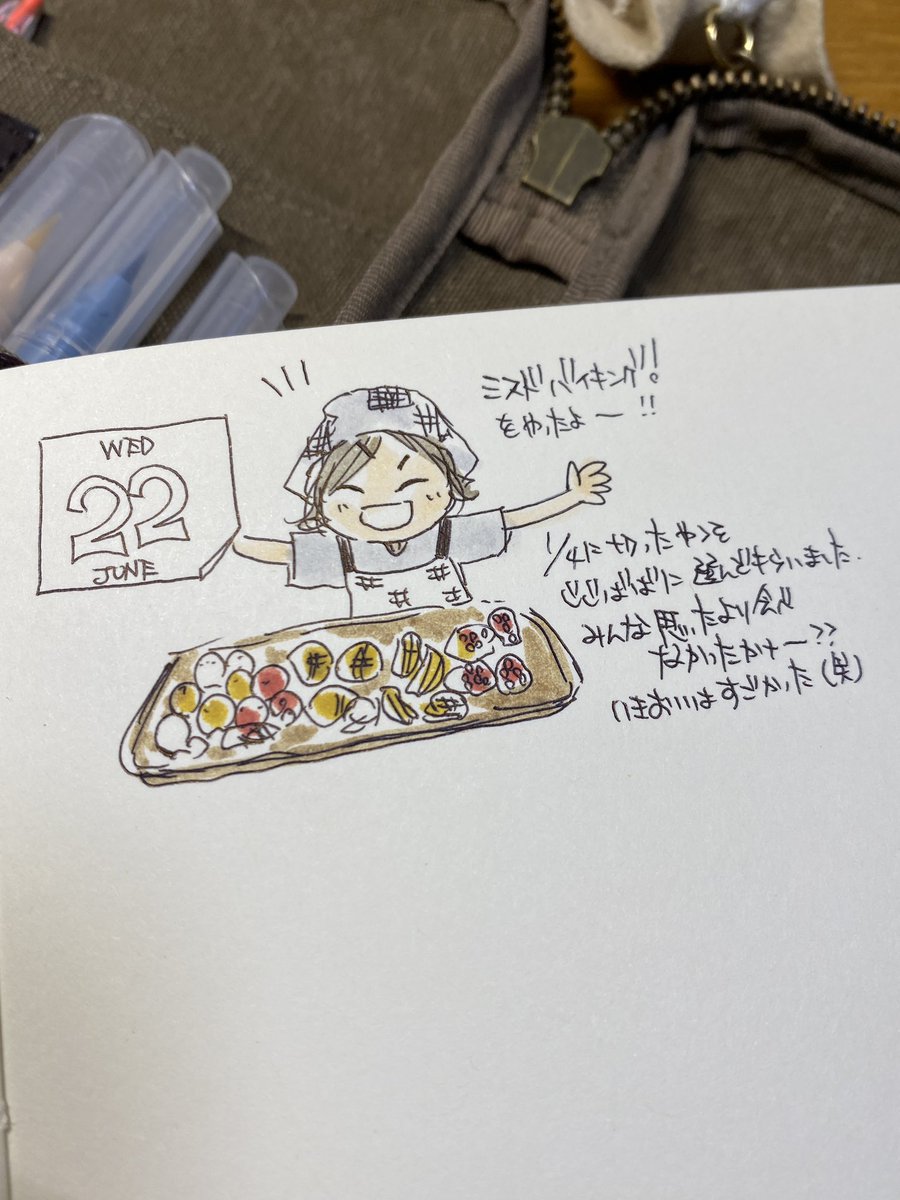 WED
22
JUNE
ミスドバイキング!!
をやったよー!!
1/4に切ったやつを
じじばばに選んでもらいました.
みんな思ったより食べ
なかったかナー??
いきおいはすごかった(笑)